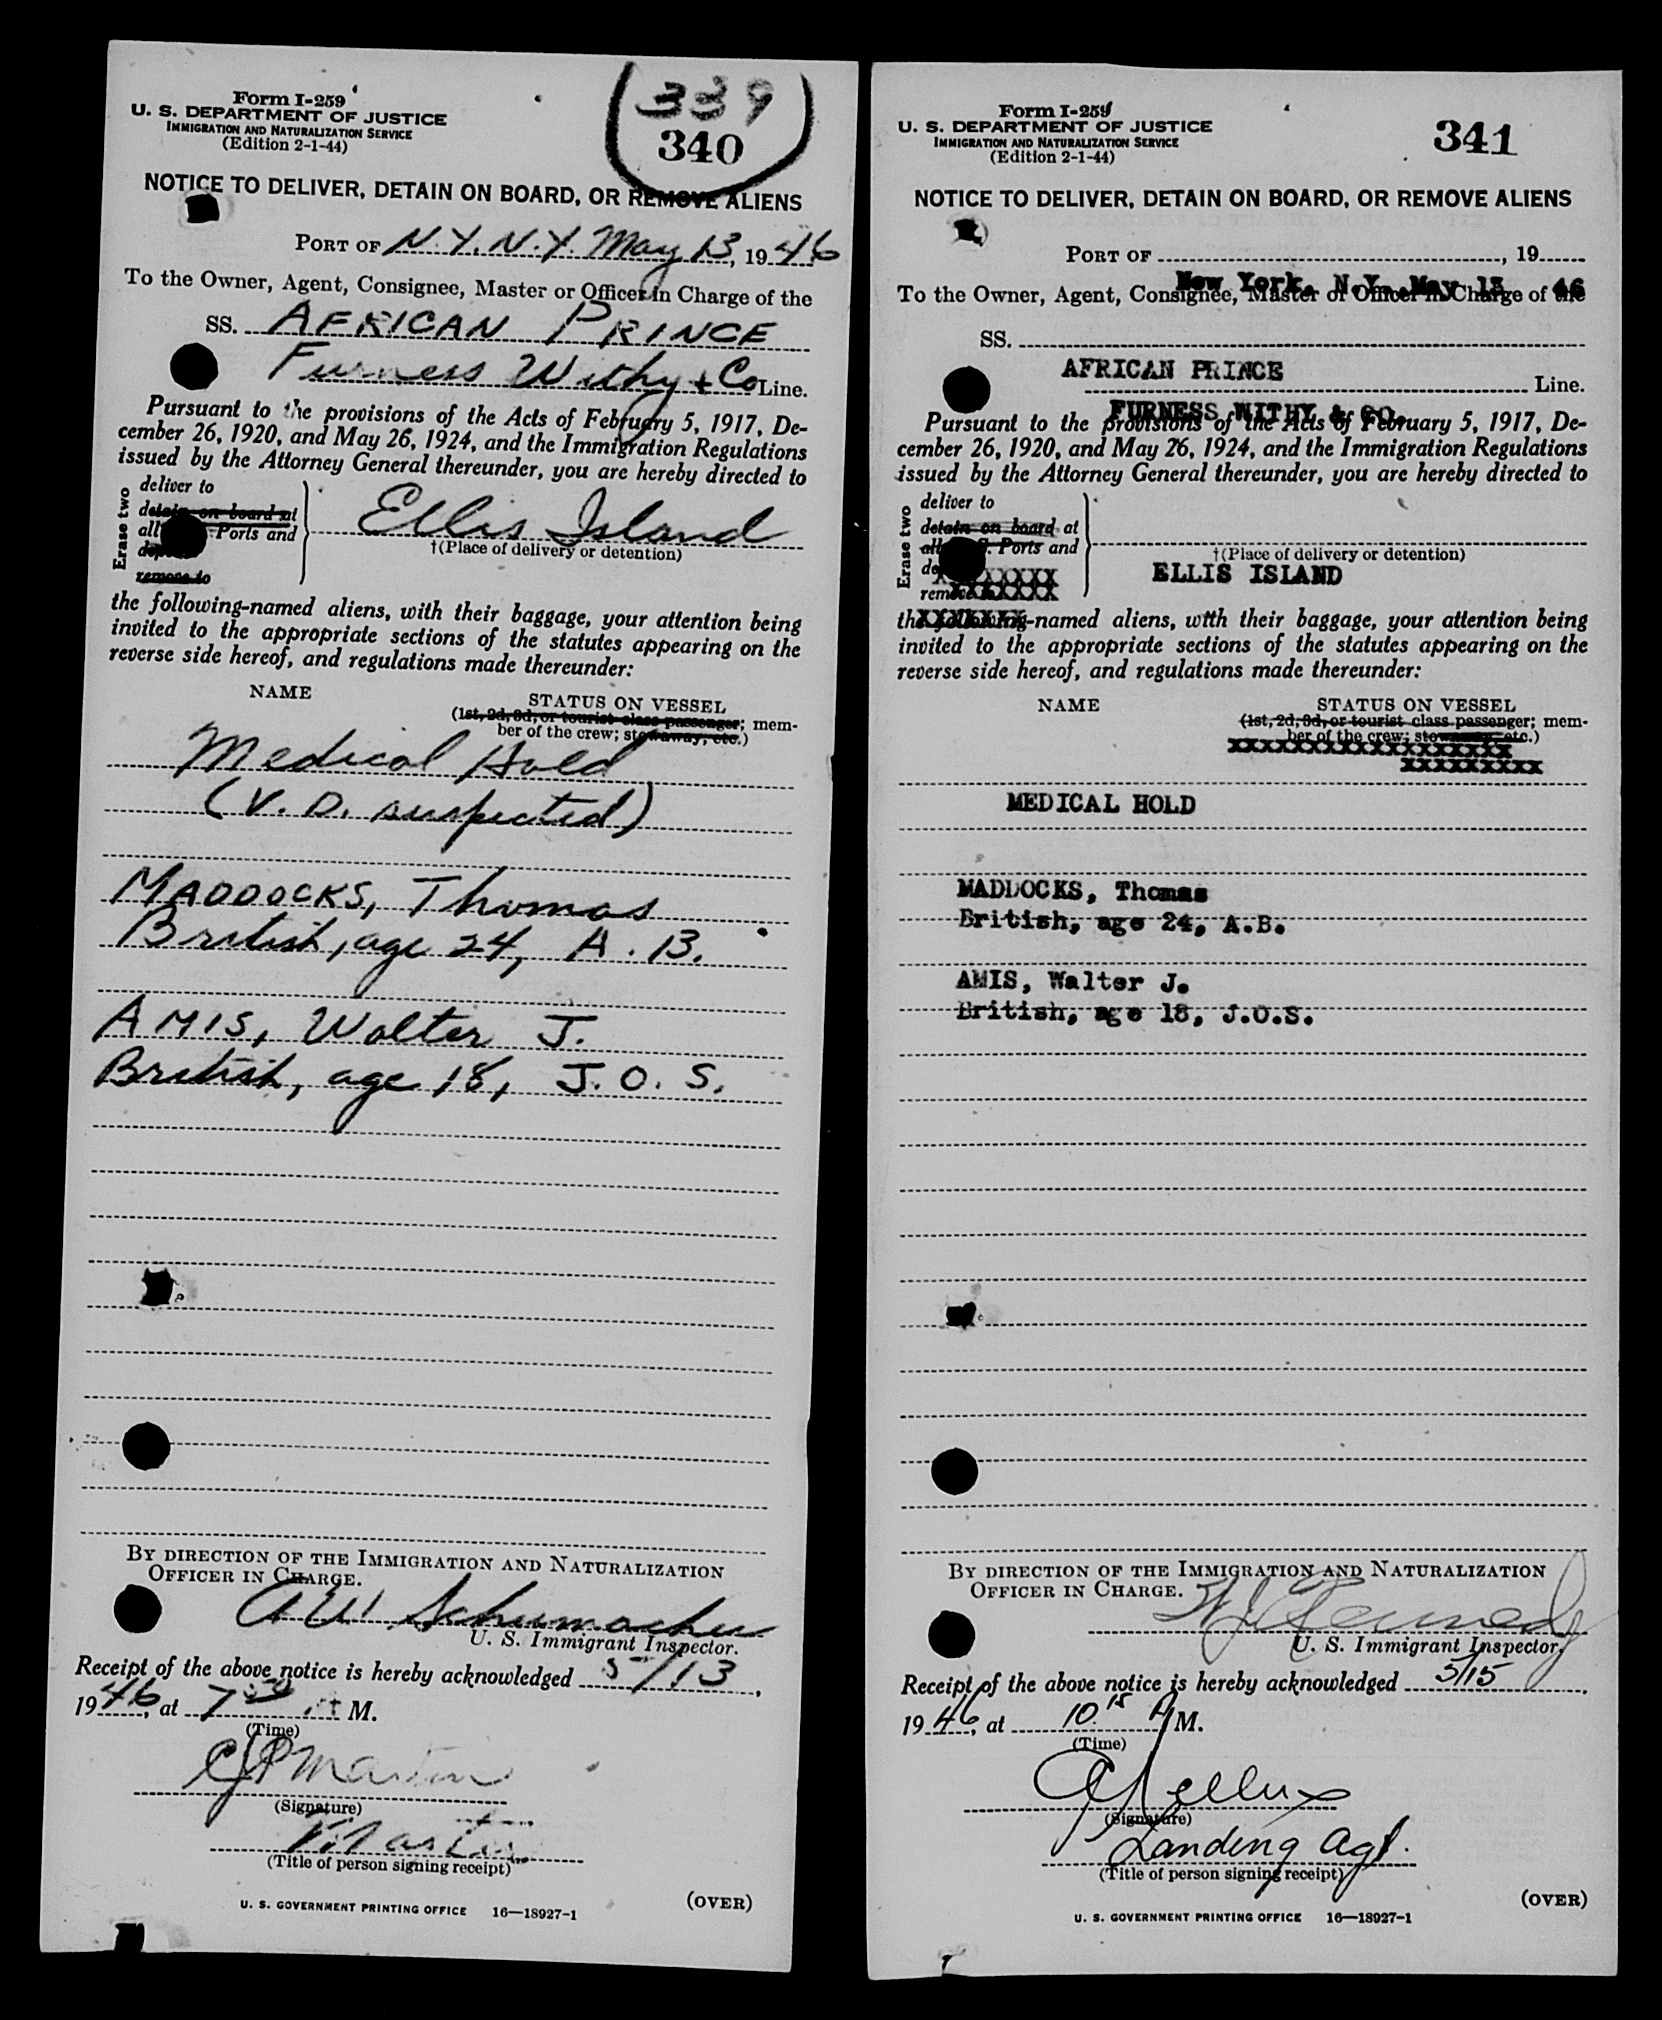 339
340
Form I-259
U. S. DEPARTMENT OF JUSTICE
IMMIGRATION AND NATURALIZATION SERVICE
(Edition 2-1-44)
NOTICE TO DELIVER, DETAIN ON BOARD, OR REMOVE ALIENS
PORT OF N.Y. N.Y. May 13, 1946
To the Owner, Agent, Consignee, Master or Officer in Charge of the
SS. AFRICAN PRINCE
Furness Withy & Co Line.
Pursuant to the provisions of the Acts of February 5, 1917, De-
cember 26, 1920, and May 26, 1924, and the Immigration Regulations
issued by the Attorney General thereunder, you are hereby directed to
Erase two
deliver to
detain on board at
all Ports and
remove to
Ellis Island
†(Place of delivery or detention)
the following-named aliens, with their baggage, your attention being
invited to the appropriate sections of the statutes appearing on the
reverse side hereof, and regulations made thereunder:
NAME STATUS ON VESSEL
(1st, 2d, 3d, or tourist class passenger; mem-
ber of the crew; stowaway, etc.)
Medical Hold
(V. D. suspected)
MADDOCKS, Thomas
British, age 24, A. B.
AMIS, Walter J.
British, age 18, J. O. S.
BY DIRECTION OF THE IMMIGRATION AND NATURALIZATION
OFFICER IN CHARGE.
A W Schumacher
U. S. Immigrant Inspector.
Receipt of the above notice is hereby acknowledged 5/13,
1946, at 7 M.
(Time)
Martin
(Signature)
Master
(Title of person signing receipt)
(OVER)
U. S. GOVERNMENT PRINTING OFFICE 16—18927-1
Form I-259
U. S. DEPARTMENT OF JUSTICE
IMMIGRATION AND NATURALIZATION SERVICE
(Edition 2-1-44)
341
NOTICE TO DELIVER, DETAIN ON BOARD, OR REMOVE ALIENS
PORT OF , 19
New York, N.Y. May 13 46
To the Owner, Agent, Consignee, Master or Officer in Charge of the
SS.
AFRICAN PRINCE
Line.
FURNESS WITHY & CO.
Pursuant to the provisions of the Acts of February 5, 1917, De-
cember 26, 1920, and May 26, 1924, and the Immigration Regulations
issued by the Attorney General thereunder, you are hereby directed to
Erase two
deliver to
detain on board at
all S. Ports and
XXXXXXX
remove XXXXXX
†(Place of delivery or detention)
ELLIS ISLAND
the following-named aliens, with their baggage, your attention being
invited to the appropriate sections of the statutes appearing on the
reverse side hereof, and regulations made thereunder:
NAME STATUS ON VESSEL
(1st, 2d, 3d, or tourist class passenger; mem-
ber of the crew; stowaway, etc.)
XXXXXXXXXXXXXXXXXXX
XXXXXXXXX
MEDICAL HOLD
MADDOCKS, Thomas
British, age 24, A.B.
AMIS, Walter J.
British, age 18, J.O.S.
BY DIRECTION OF THE IMMIGRATION AND NATURALIZATION
OFFICER IN CHARGE.
Kennedy
U. S. Immigrant Inspector.
Receipt of the above notice is hereby acknowledged 5/15.
1946, at 10.15 A M.
(Time)
(Signature)
Landing Agt.
(Title of person signing receipt)
(OVER)
U. S. GOVERNMENT PRINTING OFFICE 16—18927-1